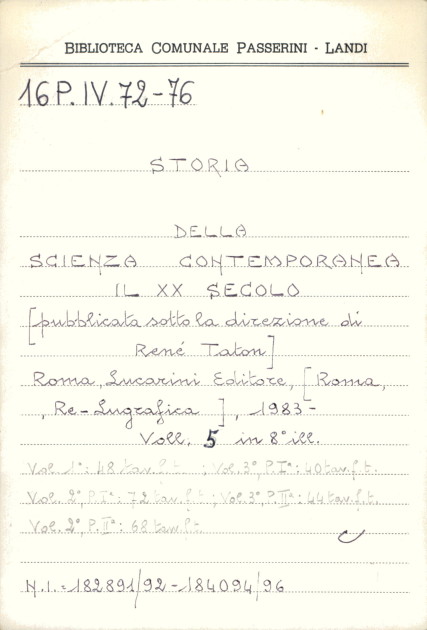 BIBLIOTECA COMUNALE PASSERINI - LANDI
16 P. IV. 72-76
STORIA
DELLA
SCIENZA CONTEMPORANEA
IL XX SECOLO
[pubblicata sotto la direzione di
René Taton]
Roma, Lucarini Editore, [Roma,
, Re-Lugrafica ], 1983-
Voll. 5 in 8° ill.
Vol. 1°: 48 tav. f. t. ; Vol. 3°, P. I°: 40 tav. f. t.
Vol. 2°, P. I°: 72 tav. f. t. ; Vol. 3°, P. II°: 44 tav. f. t.
Vol. 2°, P. II°: 68 tav. f. t.
N.I. = 182891/92 - 184094/96